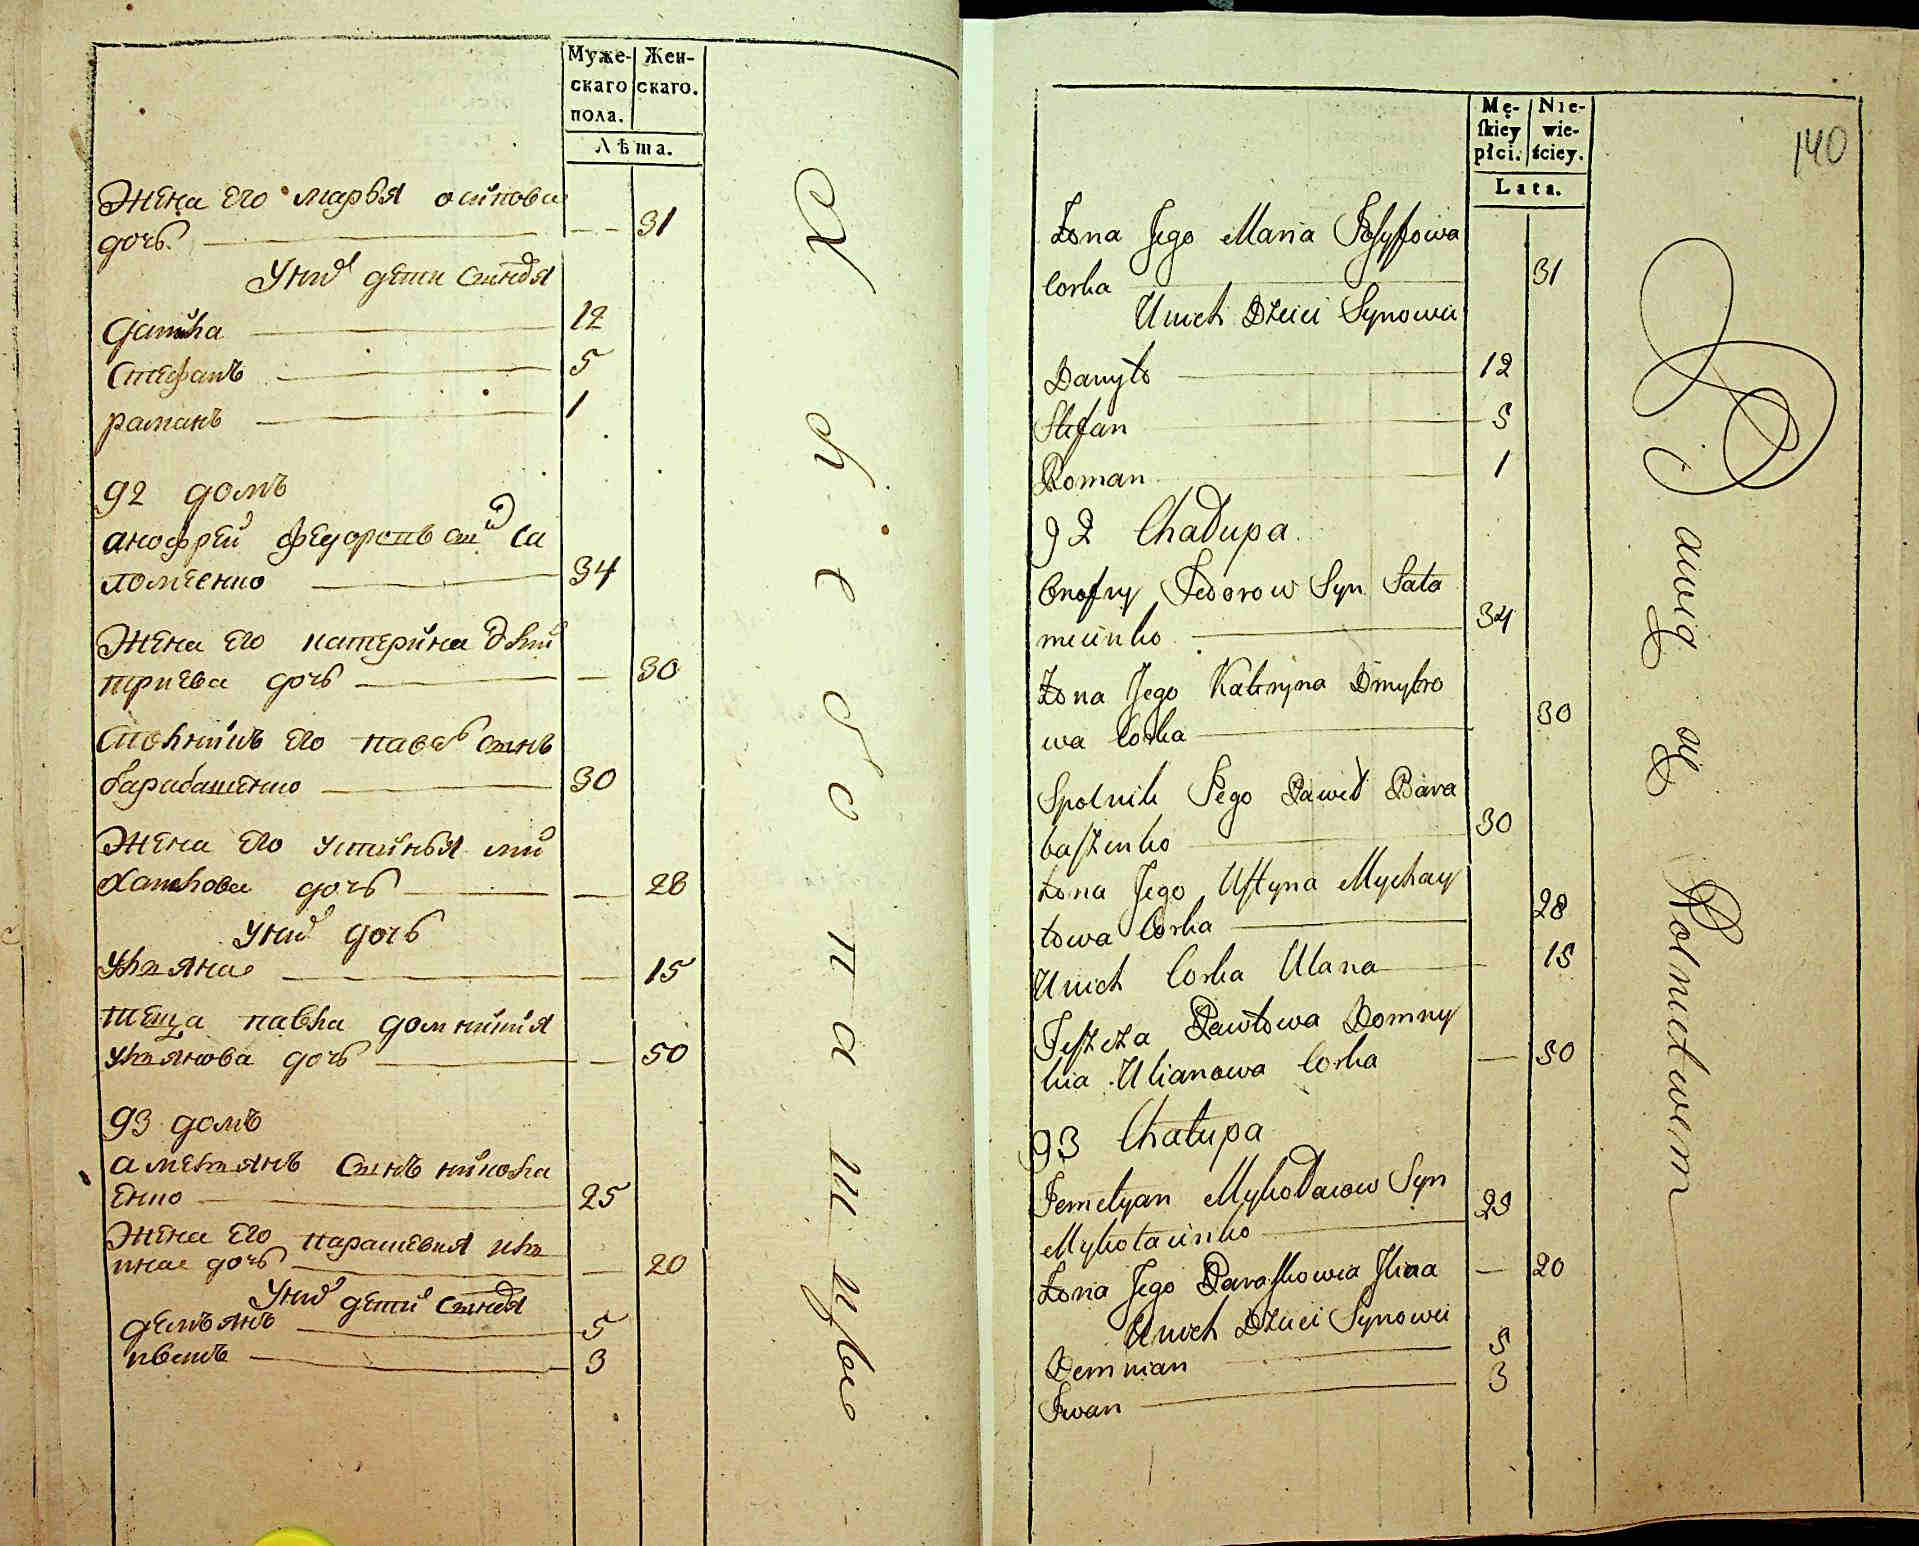 Муже-
скаго
пола.
Жен-
скаго.
Лѣта.
Жена его марья осипова
дочь 31
У них дети сыновя
12
Стефанъ 5
раманъ 1
92 домъ
анофрей федоровъ сынъ са
ломеенко 34
Жена его катерина дми
триева дочь 30
его павел сынъ
барабашенко 30
Жена его устинья ми
хайлова дочь 28
У них дочь
улияна 15
теща павла домникия
улиянова дочь 50
93 домъ
амелиянъ сынъ никола
енко 25
Жена его парасшевия или
ина дочь 20
У них дети сыновя
демъянъ 5
иванъ 3
Х
л
е
б
о
п
а
ш
цы
Mę-
ſkiey
płci.
Nie-
wie-
ściey.
Lata.
140
Żona Jego Maria Jozyfowa
Corka 31
U nich Dzieci Synowie
Danyło 12
Stefan 5
Roman 1
92 Chałupa
Onofry Fedorow Syn Sało
mieinko 34
Żona Jego Katryna Dmytro
wa Corka 30
Spolnik Jego Paweł Bara
baſzenko 30
Żona Jego Uſtyna Mychay
łowa Corka 28
U nich Corka Ulana 15
Teſzcza Pawłowa Domny
kia Ulianowa Corka 50
93 Chałupa
Jemelyan Mykołaiow Syn
Mykołaienko 25
Żona Jego Paraſkowia Jlina 20
U nich Dzieci Synowie
Demnian 5
Jwan 3
Bawią się Rolnictwem